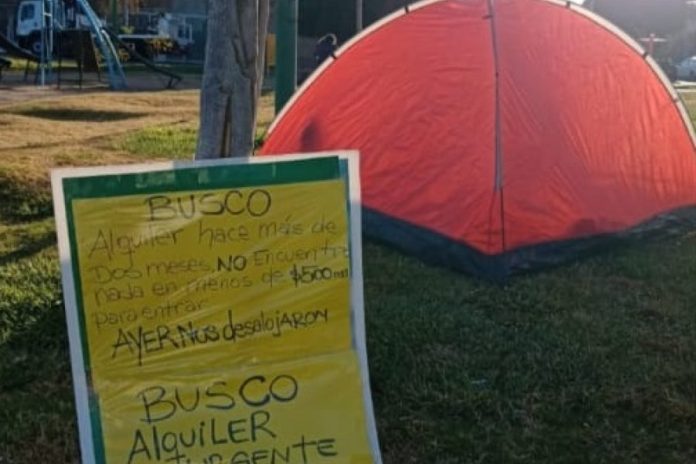 BUSCO
Alquiler hace más de
Dos meses, NO Encuentro
nada en menos de $500 mil
para entrar.
AYER Nos desalojARON
BUSCO
AlquiLER
URGENTE